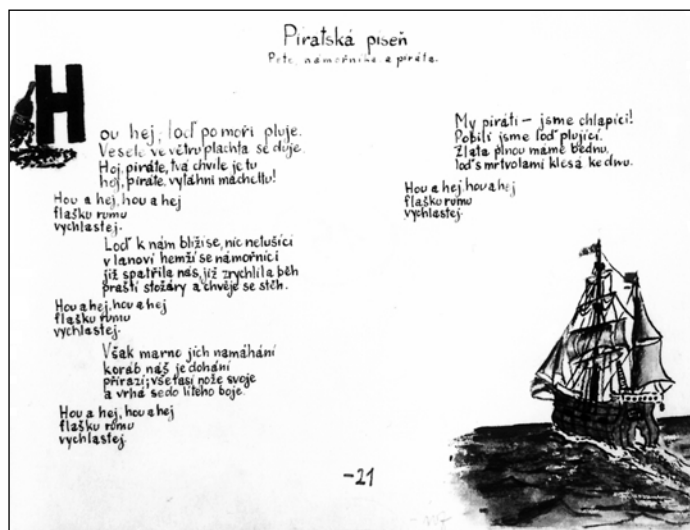 Piratská piseň
Pete, námořníka a piráta.
Hou hej, loď po moři pluje.
Vesele ve větru plachta se duje.
Hoj, piráte, tvá chvíle je tu
hej, piráte, vytáhni machettu!
Hou a hej, hou a hej
flašku rumu
vychlastej.
Loď k nám blíží se, nic netušíci
v lanoví hemží se námořníci
již spatřila nás, již zrychlila běh
praští stožáry a chvěje se stěh.
Hou a hej, hou a hej
flašku rumu
vychlastej.
Však marno jich namáhání
koráb náš je dohání
přirazí; vše tasí nože svoje
a vrhá se do lítého boje.
Hou a hej, hou a hej
flašku rumu
vychlastej.
My piráti – jsme chlapíci!
Pobili jsme loď plující.
Zlata plnou máme bednu,
loď s mrtvolami klesá ke dnu.
Hou a hej, hou a hej
flašku rumu
vychlastej.
-21